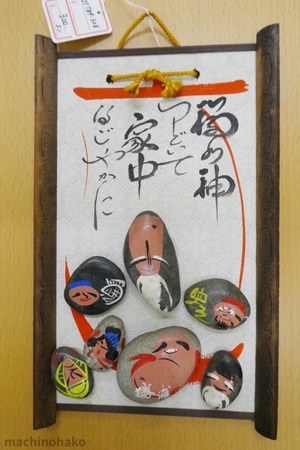 福の神
つどいて
家中
なごやかに
machinohako